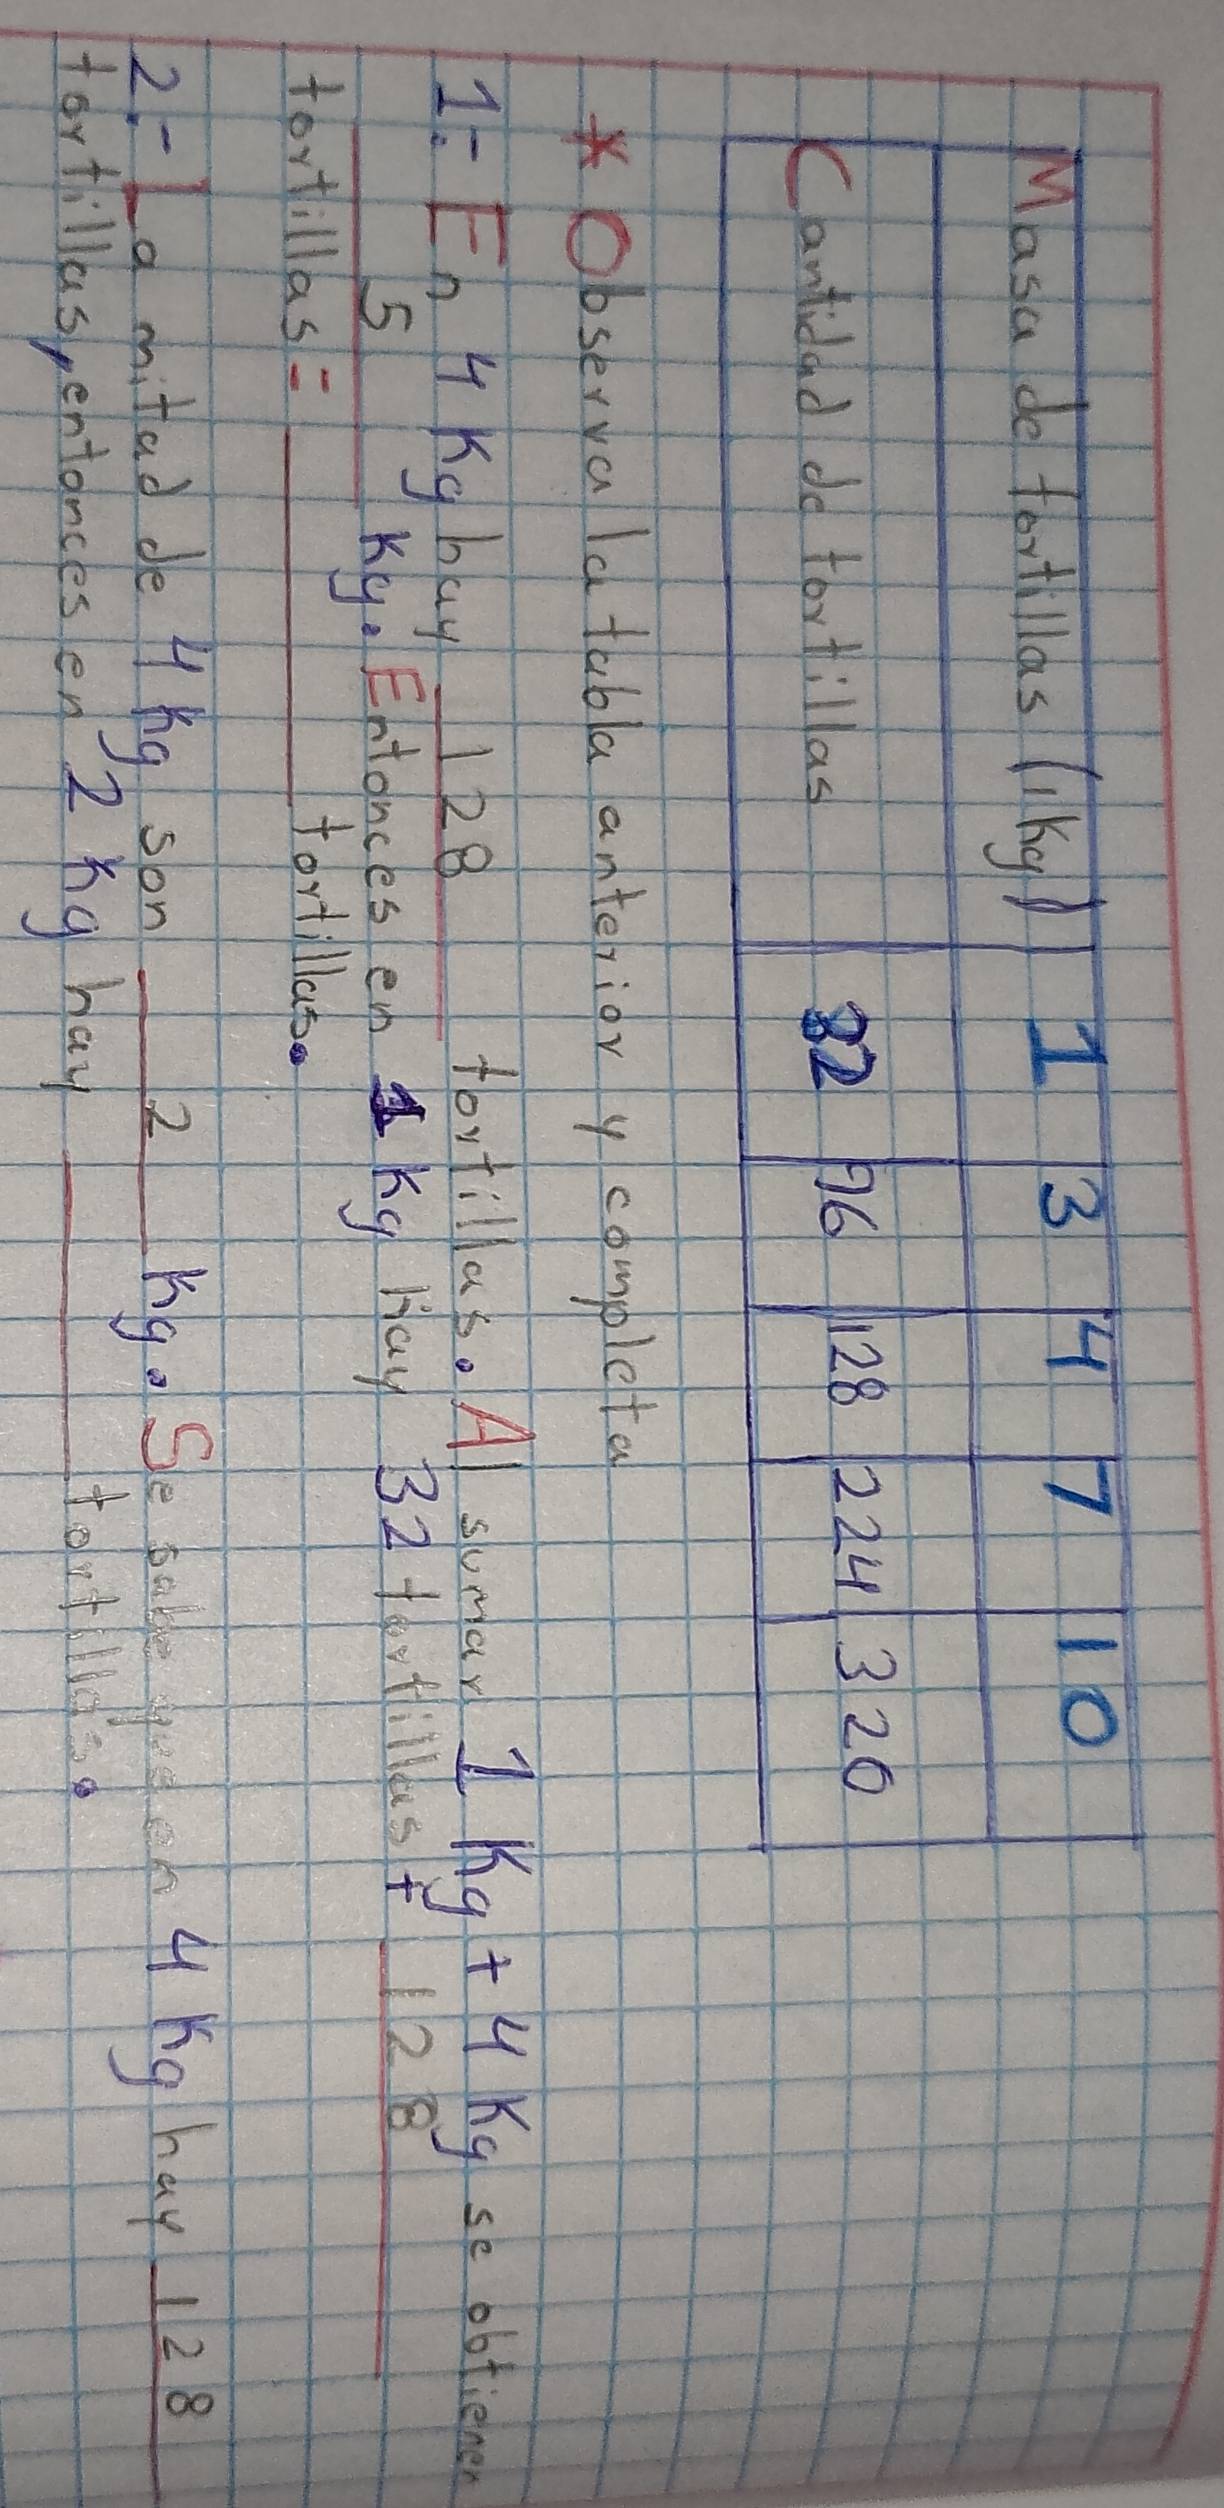 Masa de tortillas (1kg) 1 3 4 7 10
Cantidad de tortillas 32 96 128 224 320
* Observa la tabla anterior y completa
1:- En 4 Kg hay 128 tortillas. Al sumar 1 Kg + 4 Kg se obtienen
5 Kg. Entonces en 1 Kg hay 32 tortillas + 128
tortillas = tortillas.
2.- La mitad de 4 Kg son 2 Kg. Se sabe que en 4 Kg hay 128
tortillas, entonces en 2 Kg hay tortillas.